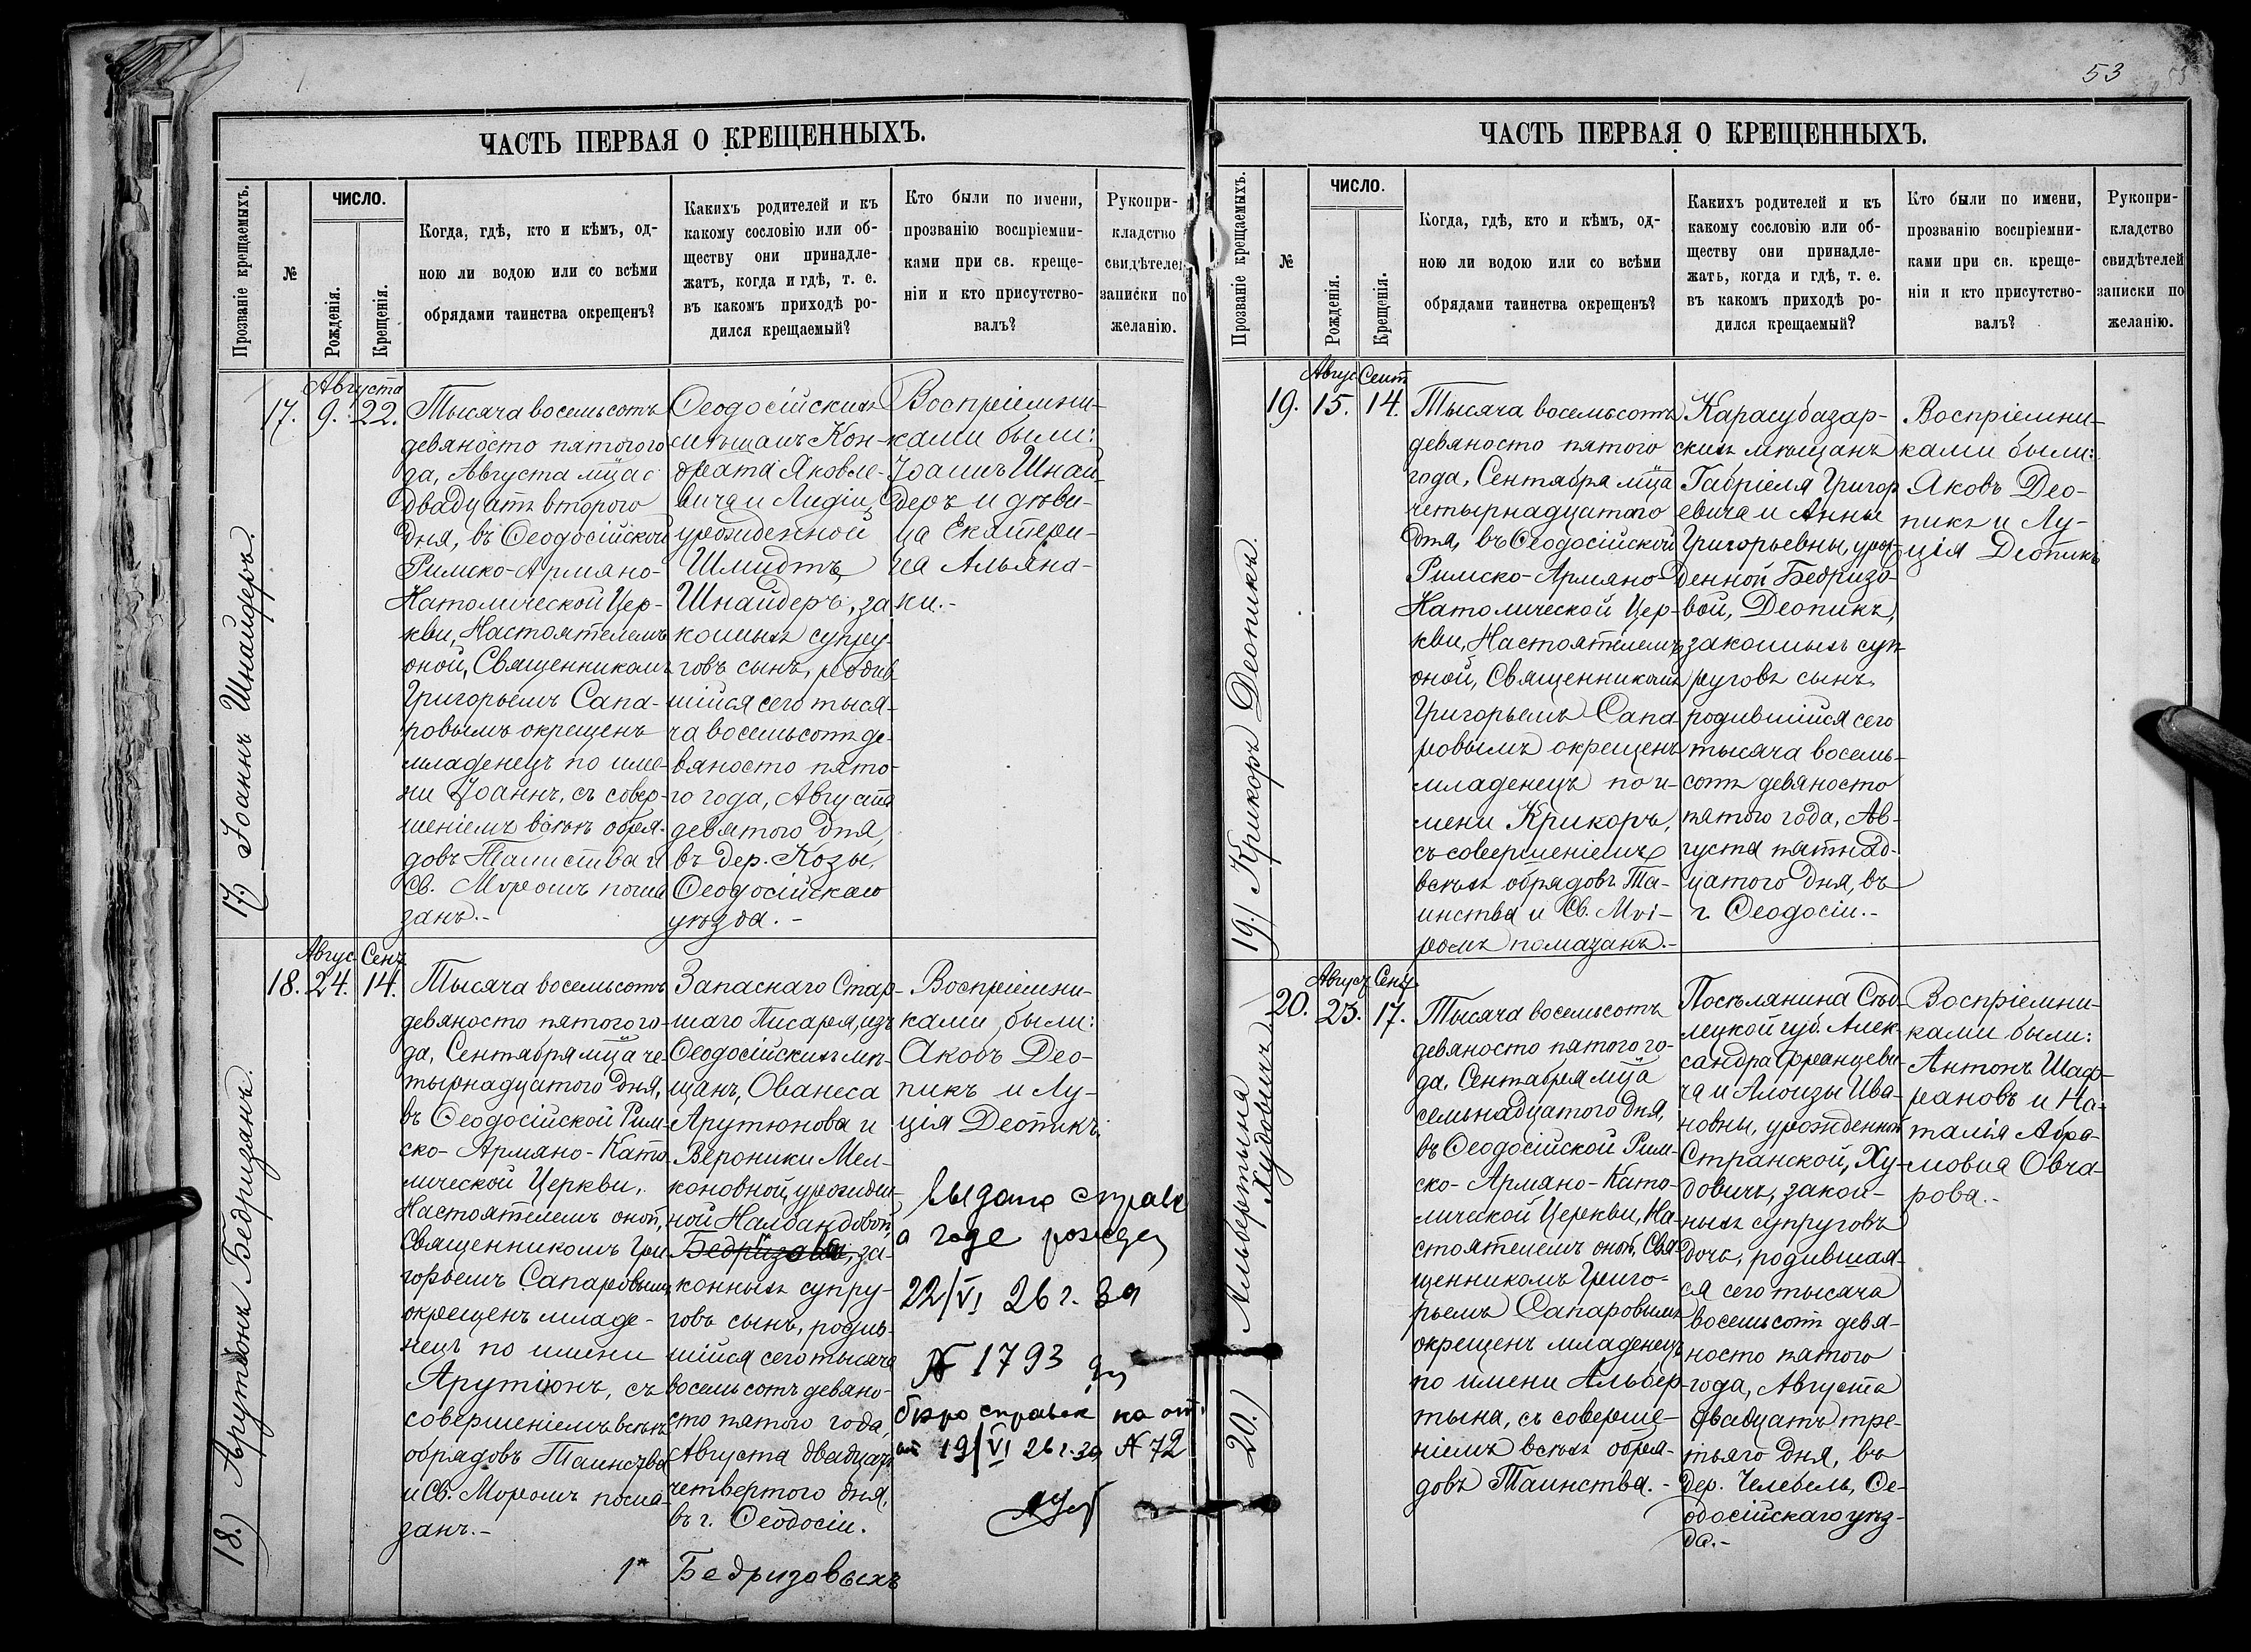 53
ЧАСТЬ ПЕРВАЯ О КРЕЩЕННЫХЪ.
Прозваніе крещаемыхъ.
№
ЧИСЛО.
Рожденія.
Крещенія.
Когда, гдѣ, кто и кѣмъ, од-
ною ли водою или со всѣми
обрядами таинства окрещенъ?
Какихъ родителей и къ
какому сословію или об-
ществу они принадле-
жатъ, когда и гдѣ, т. е.
въ какомъ приходѣ ро-
дился крещаемый?
Кто были по имени,
прозванію воспріемни-
ками при св. креще-
ніи и кто присутство-
валъ?
Рукопри-
кладство
свидѣтелей
записки по
желанію.
17) Іоаннъ Шнайдеръ.
17.
Августа
9. 22.
Тысяча восемьсотъ
девяносто пятого го
да, Августа мца
двадцать второго
дня, въ Ѳеодосійской
Римско-Армяно-
Католической Цер-
кви, Настоятелемъ
оной, Священникомъ
Григорьемъ Сапа-
ровымъ окрещенъ
младенецъ по име-
ни Іоаннъ, съ совер-
шеніемъ всѣхъ обря-
довъ Таинства и
Св. Мѵромъ пома
занъ.-
Ѳеодосійскихъ
мѣщанъ Кон-
драта Яковле-
вича и Лидіи,
урожденной
Шмидтъ,
Шнайдеръ, за
конныхъ супру-
говъ сынъ, родив
шійся сего тыся-
ча восемьсотъ де-
вяносто пято-
го года, Августа
девятого дня,
въ дер. Козы,
Ѳеодосійскаго
уѣзда.-
Воспріемни-
ками были:
Іоаннъ Шнай-
деръ и дѣви-
ца Екатери-
на Альяна-
ки.-
18.) Арутюнъ Бедризянъ.
18.
Авгус. Сент.
24. 14.
Тысяча восемьсотъ
девяносто пятого го-
да, Сентября мца че-
тырнадцатого дня,
въ Ѳеодосійской Рим-
ско-Армяно-Като-
лической Церкви,
Настоятелемъ оной,
Священникомъ Гри
горьемъ Сапаровымъ
окрещенъ младе-
нецъ по имени
Арутюнъ, съ
совершеніемъ всѣхъ
обрядовъ Таинства
и Св. Мѵромъ пома-
занъ.-
Запаснаго Стар-
шаго Писаря, изъ
Ѳеодосійскихъ мѣ-
щанъ, Ованеса
Арутюнова и
Вероники Мел-
коновной, урожден-
ной Налбандовой,
за-
конныхъ супру-
говъ сынъ, родив-
шійся сего тысяча
восемьсотъ девяно-
сто пятого года,
Августа двадцать
четвертого дня,
въ г. Ѳеодосіи.
1* Бедризовыхъ
Воспріемни-
ками были:
Акопъ Део-
пикъ и Лу-
ція Деопикъ.
выдана справк
о годе рожден
22/VI 26 г. за
№ 1793
бюро справок на от.
от 19/VI 26 г. за № 72
ЧАСТЬ ПЕРВАЯ О КРЕЩЕННЫХЪ.
Прозваніе крещаемыхъ.
№
ЧИСЛО.
Рожденія.
Крещенія.
Когда, гдѣ, кто и кѣмъ, од-
ною ли водою или со всѣми
обрядами таинства окрещенъ?
Какихъ родителей и къ
какому сословію или об-
ществу они принадле-
жатъ, когда и гдѣ, т. е.
въ какомъ приходѣ ро-
дился крещаемый?
Кто были по имени,
прозванію воспріемни-
ками при св. креще-
ніи и кто присутство-
валъ?
Рукопри-
кладство
свидѣтелей
записки по
желанію.
19.) Крикоръ Деопикъ.
19.
Авгус Сент
15. 14.
Тысяча восемьсотъ
девяносто пятого
года, Сентября мца
четырнадцатого
дня, въ Ѳеодосійской
Римско-Армяно-
Католической Цер-
кви, Настоятелемъ
оной, Священникомъ
Григорьемъ Сапа
ровымъ окрещенъ
младенецъ по и-
мени Крикоръ,
съ совершеніемъ
всѣхъ обрядовъ Та-
инства и Св. Мѵ-
ромъ помазанъ.-
Карасубазар-
скихъ мѣщанъ
Габріеля Григор
евича и Анны
Григорьевны, урож-
денной Бедризо-
вой, Деопикъ,
законныхъ суп
руговъ сынъ,
родившійся сего
тысяча восемь-
сотъ девяносто
пятого года, Ав-
густа пятнад-
цатого дня, въ
г. Ѳеодосіи.-
Воспріемни-
ками были:
Яковъ Део-
пикъ и Лу-
ція Деопикъ
20.) Альбертына Худовичъ
20.
Авгус. Сент.
23. 17.
Тысяча восемьсотъ
девяносто пятого го-
да, Сентября мца
семьнадцатого дня,
въ Ѳеодосійской Рим-
ско-Армяно-Като-
лической Церкви, На-
стоятелемъ оной, Свя-
щенникомъ Григо-
рьемъ Сапаровымъ
окрещенъ младенецъ
по имени Альбер-
тына, съ соверше-
ніемъ всѣхъ обря-
довъ Таинства.-
Посѣлянина Сѣд-
лецкой губ. Алек
сандра Францеви-
ча и Алоизы Ива-
новны, урожденной
Странской, Ху-
довичъ, закон-
ныхъ супруговъ
дочь, родившая-
ся сего тысяча
восемьсотъ девя-
носто пятого
года, Августа
двадцать тре-
тьяго дня, въ
дер. Челебель, Ѳе-
одосійскаго уѣз-
да.-
Воспріемни-
ками были:
Антонъ Шаф-
рановъ и На-
талія Абра-
мовна Овча-
рова.-